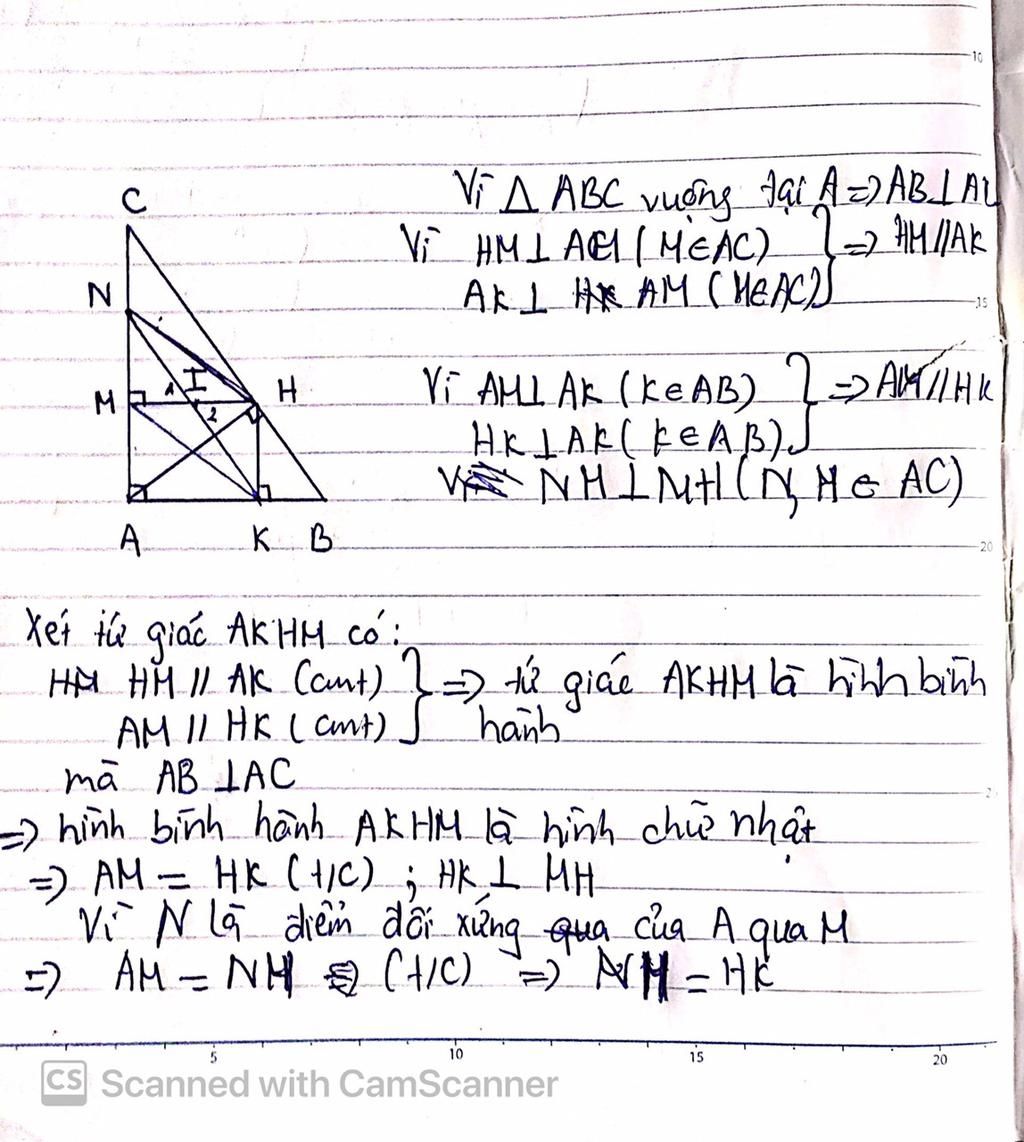 10
Vì Δ ABC vuông tại A => AB ⊥ AC
Vì HM ⊥ AC (M ∈ AC)
AK ⊥ AM (M ∈ AC)
=> HM // AK
15
Vì AM ⊥ AK (K ∈ AB)
HK ⊥ AK (K ∈ AB)
=> AM // HK
NM ⊥ MH (N, M ∈ AC)
20
C
N
I
M 1 H
2
A K B
Xét tứ giác AKHM có:
HM // AK (cmt)
AM // HK (cmt)
=> tứ giác AKHM là hình bình
hành
mà AB ⊥ AC
=> hình bình hành AKHM là hình chữ nhật
=> AM = HK (t/c) ; HK ⊥ MH
Vì N là điểm đối xứng của A qua M
=> AM = NM (t/c) => NM = HK
5 10 15 20
CS Scanned with CamScanner